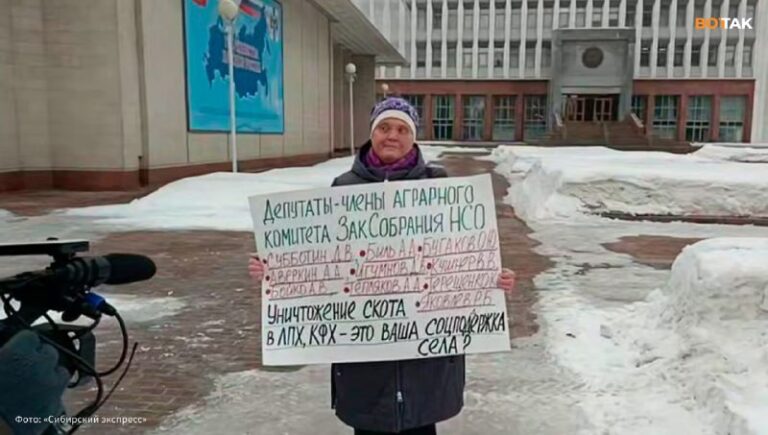 ВОТТАК
Депутаты-члены Аграрного
комитета ЗакСобрания НСО
•Субботин Д.В. •Биль А.А. •Бугаков О.Ю.
•Аверкин А.Д. •Игумнов Д. •Кушнер В.В.
•Бойко А.В. •Тепляков А.А. •Терещенко
•Яковлев Р.Б.
Уничтожение скота
в ЛПХ, КФХ - это ваша соцподдержка
села?
Фото: «Сибирский экспресс»